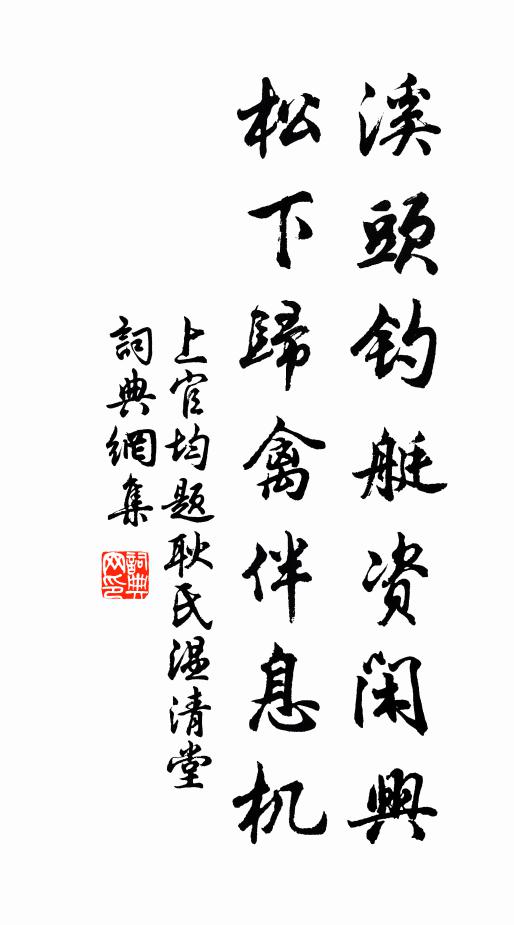 溪頭钓艇资閑興
松下歸禽伴息机
上官均题耿氏温清堂
詞典網集
詞典
网印